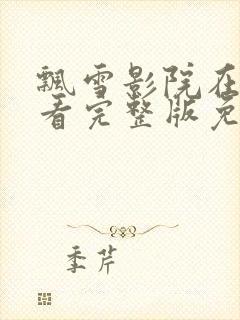 飘雪影院在
看完整版免
季芹